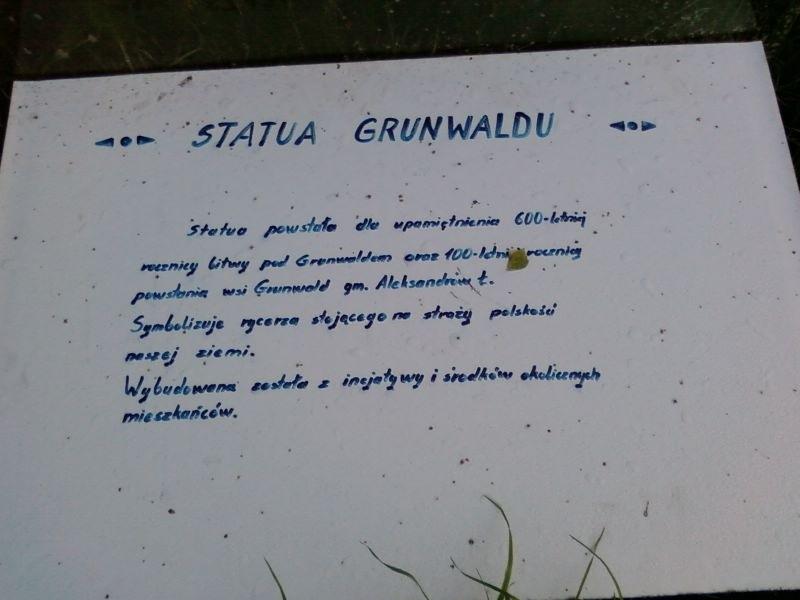 STATUA GRUNWALDU
Statua powstała dla upamiętnienia 600-letniej
rocznicy bitwy pod Grunwaldem oraz 100-letniej rocznicy
powstania wsi Grunwald gm. Aleksandrów Ł.
Symbolizuje rycerza stojącego na straży polskości
naszej ziemi.
Wybudowana została z incjatywy i środków okolicznych
mieszkańców.